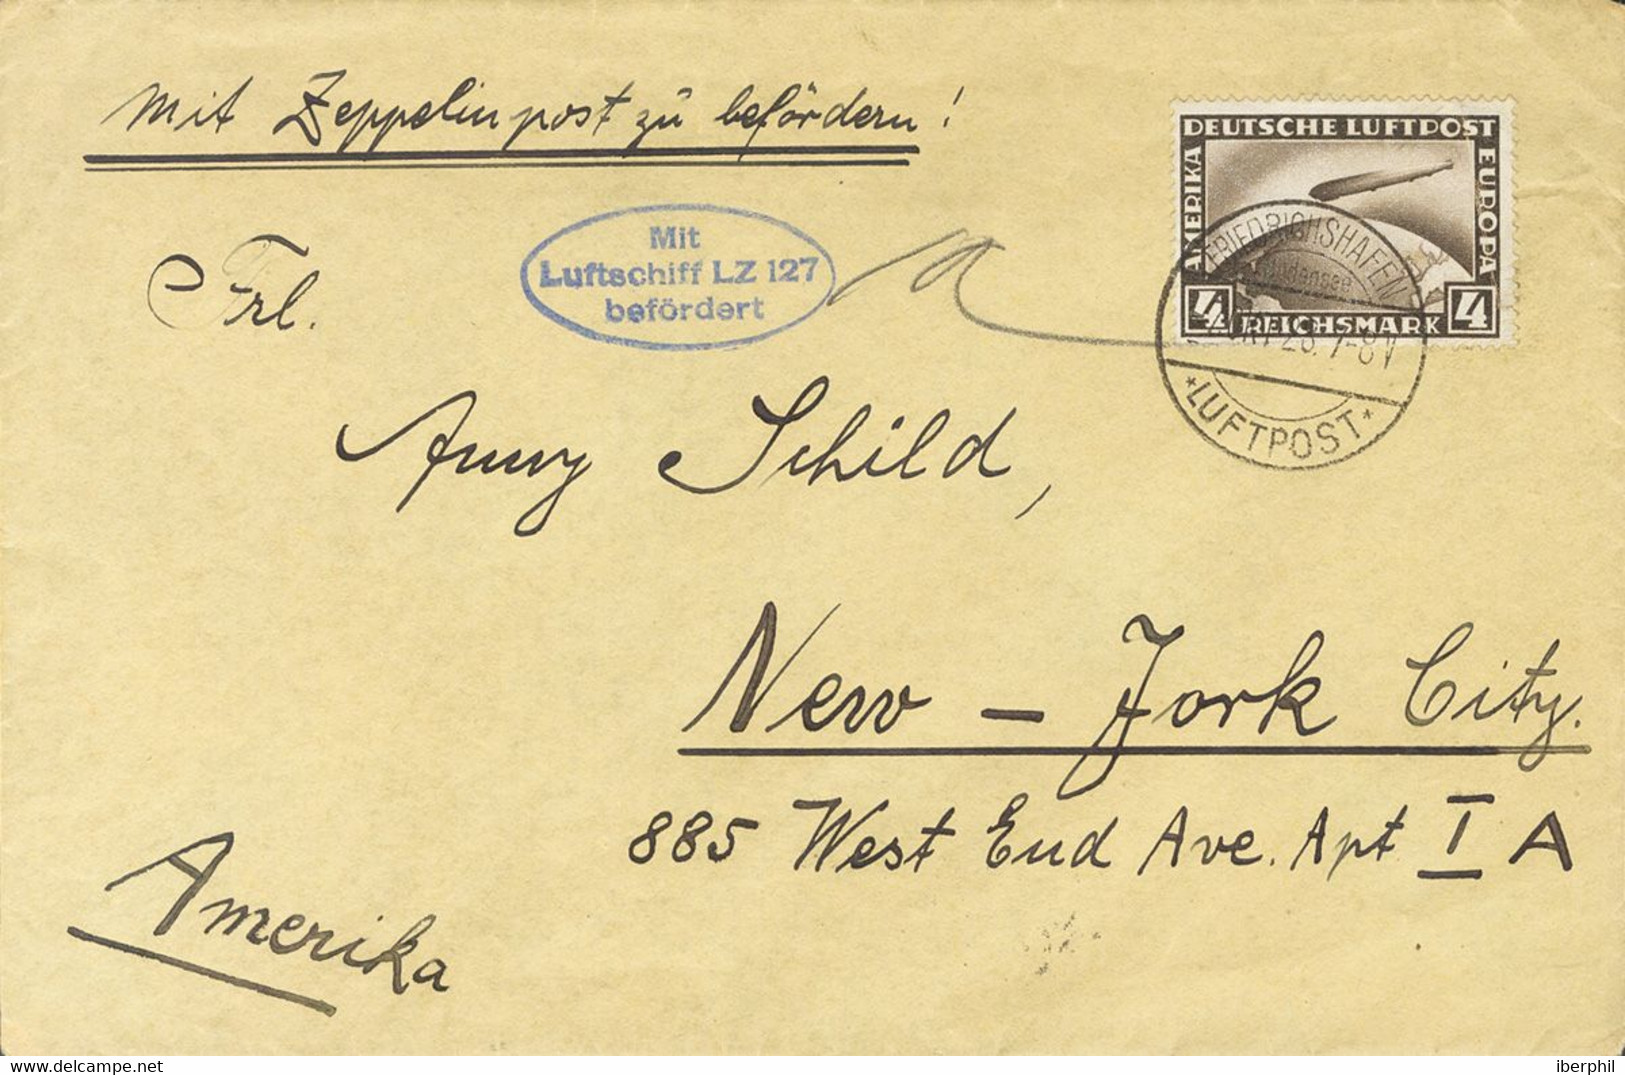 Mit Zeppelinpost zu befördern!
DEUTSCHE LUFTPOST
AMERIKA
EUROPA
4 REICHSMARK 4
FRIEDRICHSHAFEN
Bodensee
OKT 28. 7-8 V
* LUFTPOST *
Mit
Luftschiff LZ 127
befördert
Frl.
Anny Schild,
New - Jork City.
885 West End Ave. Apt I A
Amerika
https://www.delcampe.net
iberphil